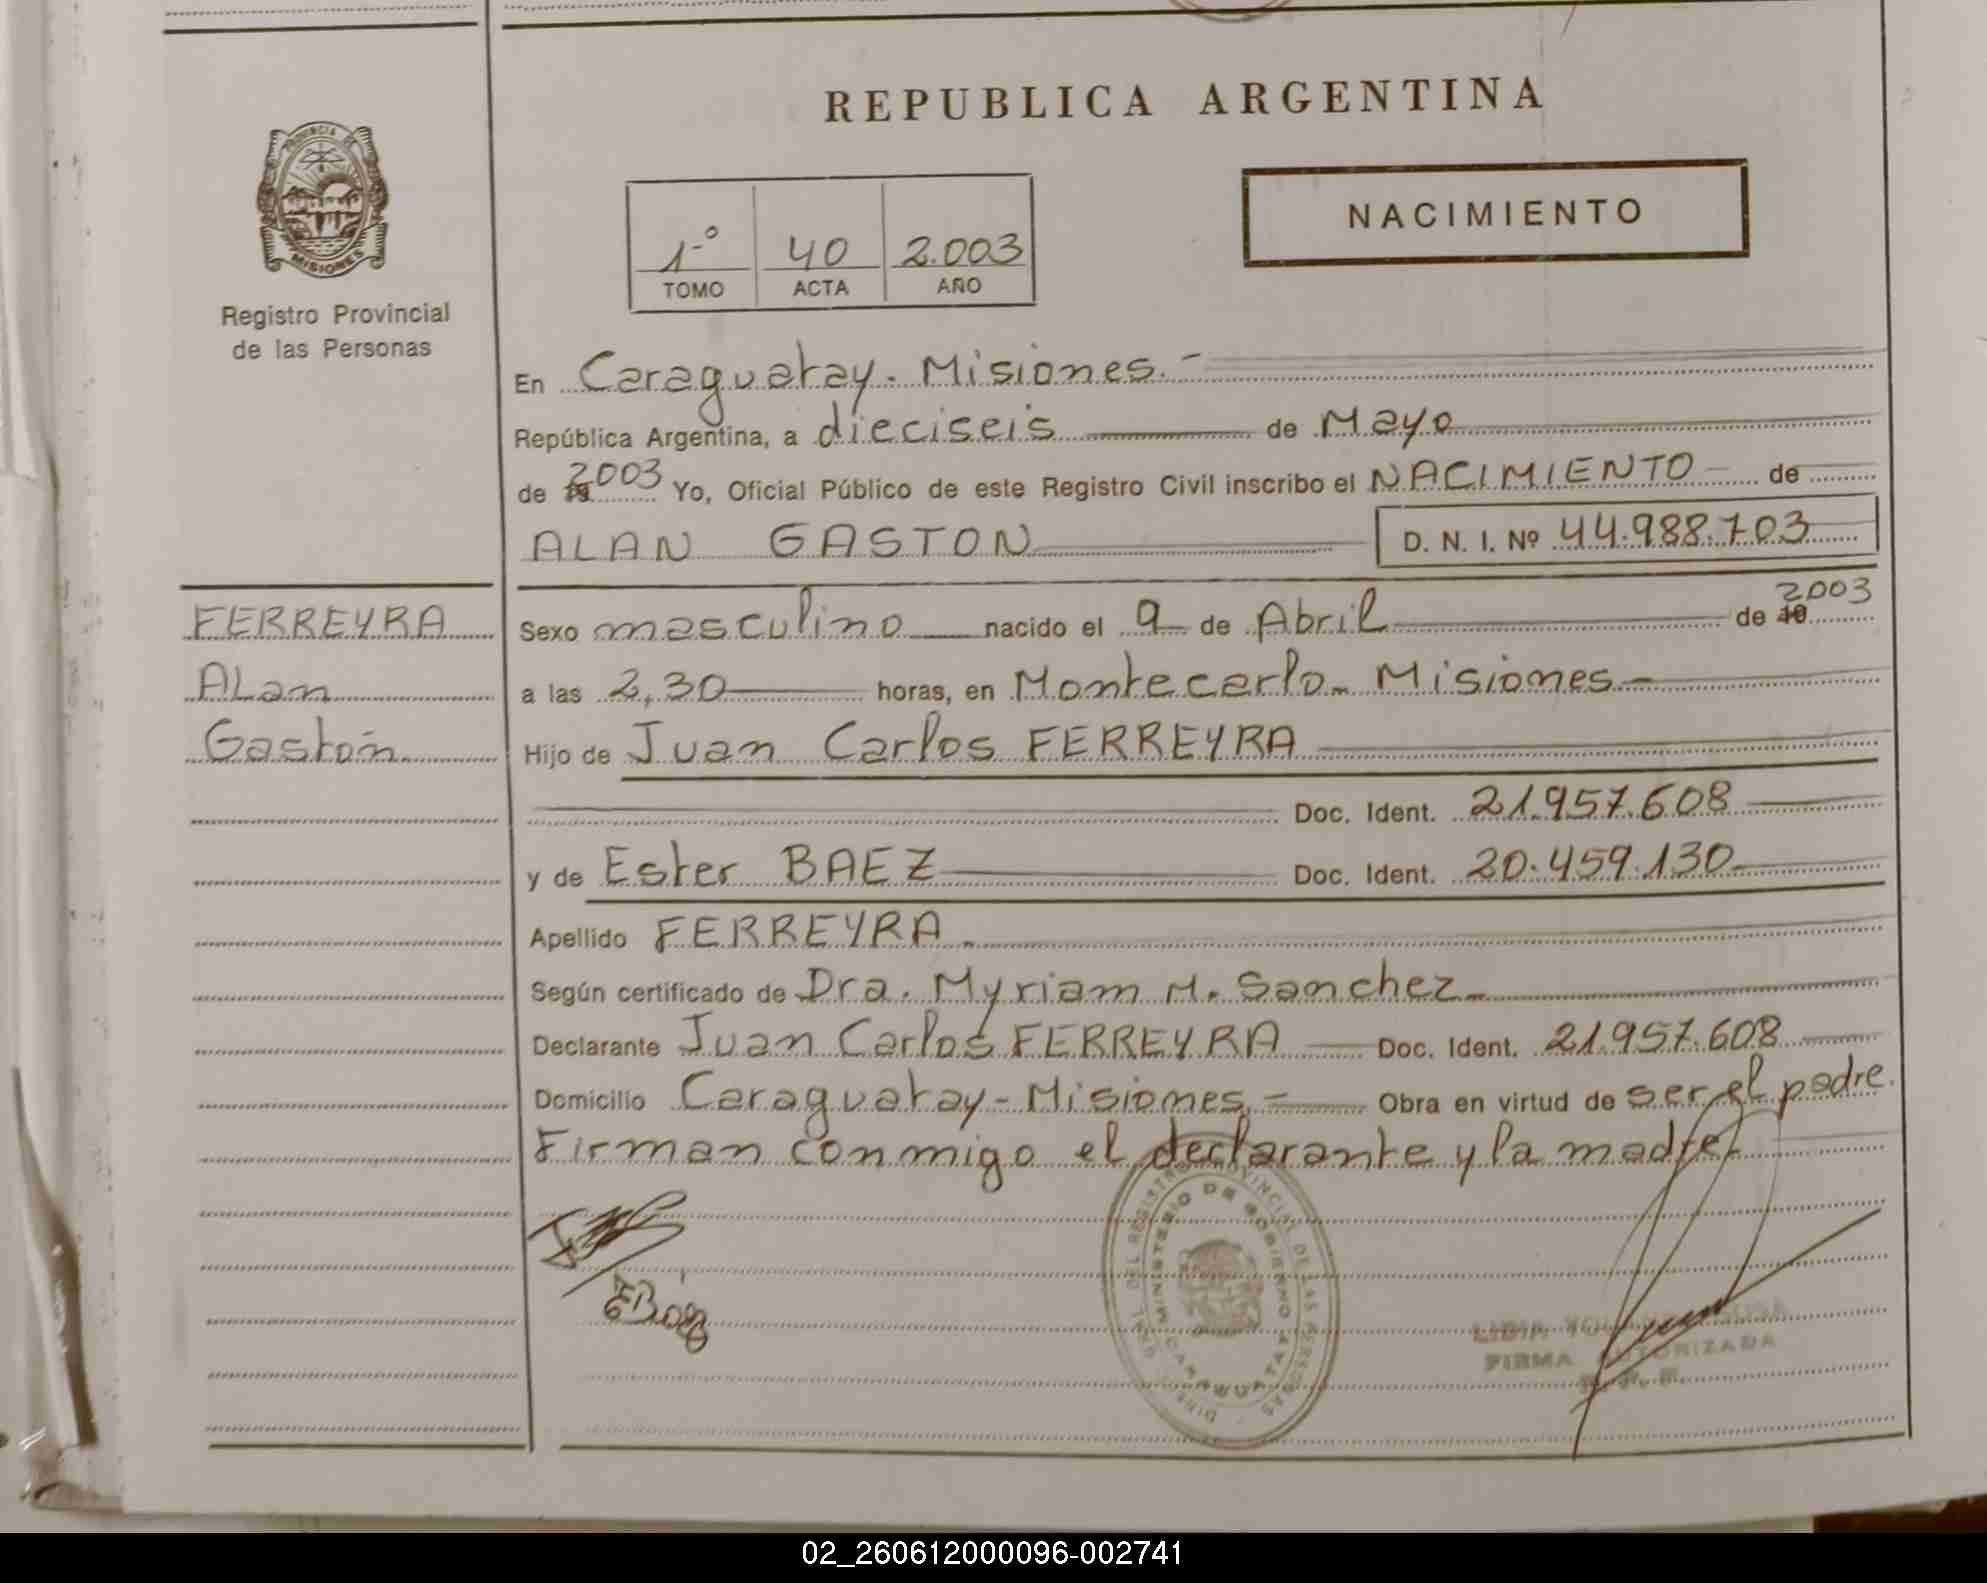 REPUBLICA ARGENTINA
PROVINCIA DE
MISIONES
Registro Provincial
de las Personas
1º 40 2.003
TOMO ACTA AÑO
NACIMIENTO
En Caraguatay. Misiones.-
República Argentina, a dieciseis de Mayo
de 2003 Yo, Oficial Público de este Registro Civil inscribo el NACIMIENTO de
ALAN GASTON D. N. I. Nº 44.988.703
FERREYRA
Alan
Gastón.
Sexo masculino nacido el 9 de Abril de 2003
a las 2,30 horas, en Montecarlo. Misiones-
Hijo de Juan Carlos FERREYRA
Doc. Ident. 21.957.608
y de Ester BAEZ Doc. Ident. 20.459.130
Apellido FERREYRA.
Según certificado de Dra. Myriam M. Sanchez
Declarante Juan Carlos FERREYRA Doc. Ident. 21.957.608
Domicilio Caraguatay-Misiones.- Obra en virtud de ser el padre.
Firman conmigo el declarante y la madre.
MINISTERIO DE GOBIERNO
CARAGUATAY
LIDIA
FIRMA AUTORIZADA
02_260612000096-002741